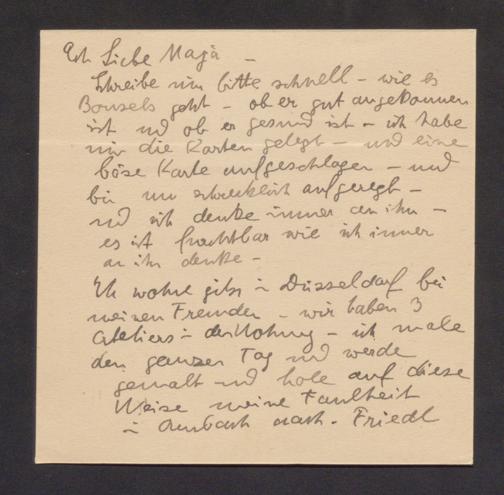 Ach Liebe Maja –
Schreibe mir bitte schnell – wie es
Bonsels geht – ob er gut angekommen
ist und ob er gesund ist – ich habe
mir die Karten gelegt – und eine
böse Karte aufgeschlagen – und
bin nun schrecklich aufgeregt –
und ich denke immer an ihn –
es ist furchtbar wie ich immer
an ihn denke –
Ich wohne in Düsseldorf bei
meinen Freunden – wir haben 3
Ateliers in der Wohnung – ich male
den ganzen Tag und werde
gemalt und hole auf diese
Weise meine Faulheit
in Ambach nach. Friedl